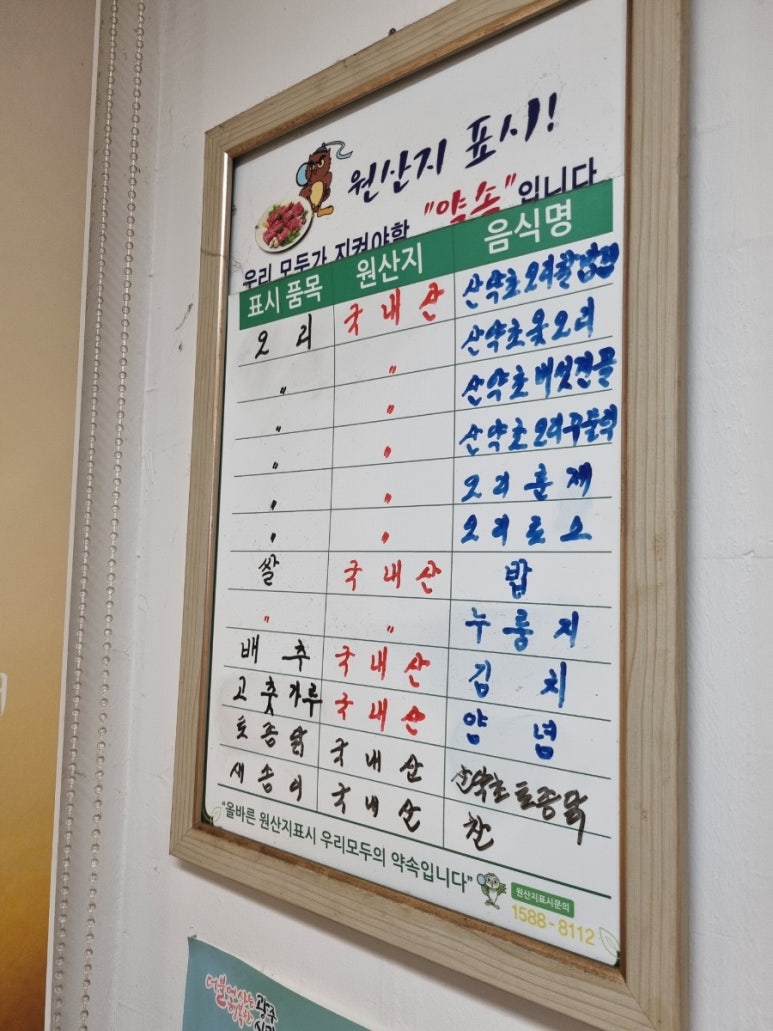 원산지 표시!
우리 모두가 지켜야할 "약속"입니다
표시 품목 원산지 음식명
오리 국내산 산약초오리찰밥찜
〃 〃 산약초옻오리
〃 〃 산약초버섯전골
〃 〃 산약초오리주물럭
〃 〃 오리훈제
〃 〃 오리로스
쌀 국내산 밥
〃 〃 누룽지
배추 국내산 김치
고춧가루 국내산 양념
토종닭 국내산 산약초토종닭
새송이 국내산 찬
"올바른 원산지표시 우리모두의 약속입니다"
원산지표시문의
1588-8112
광주